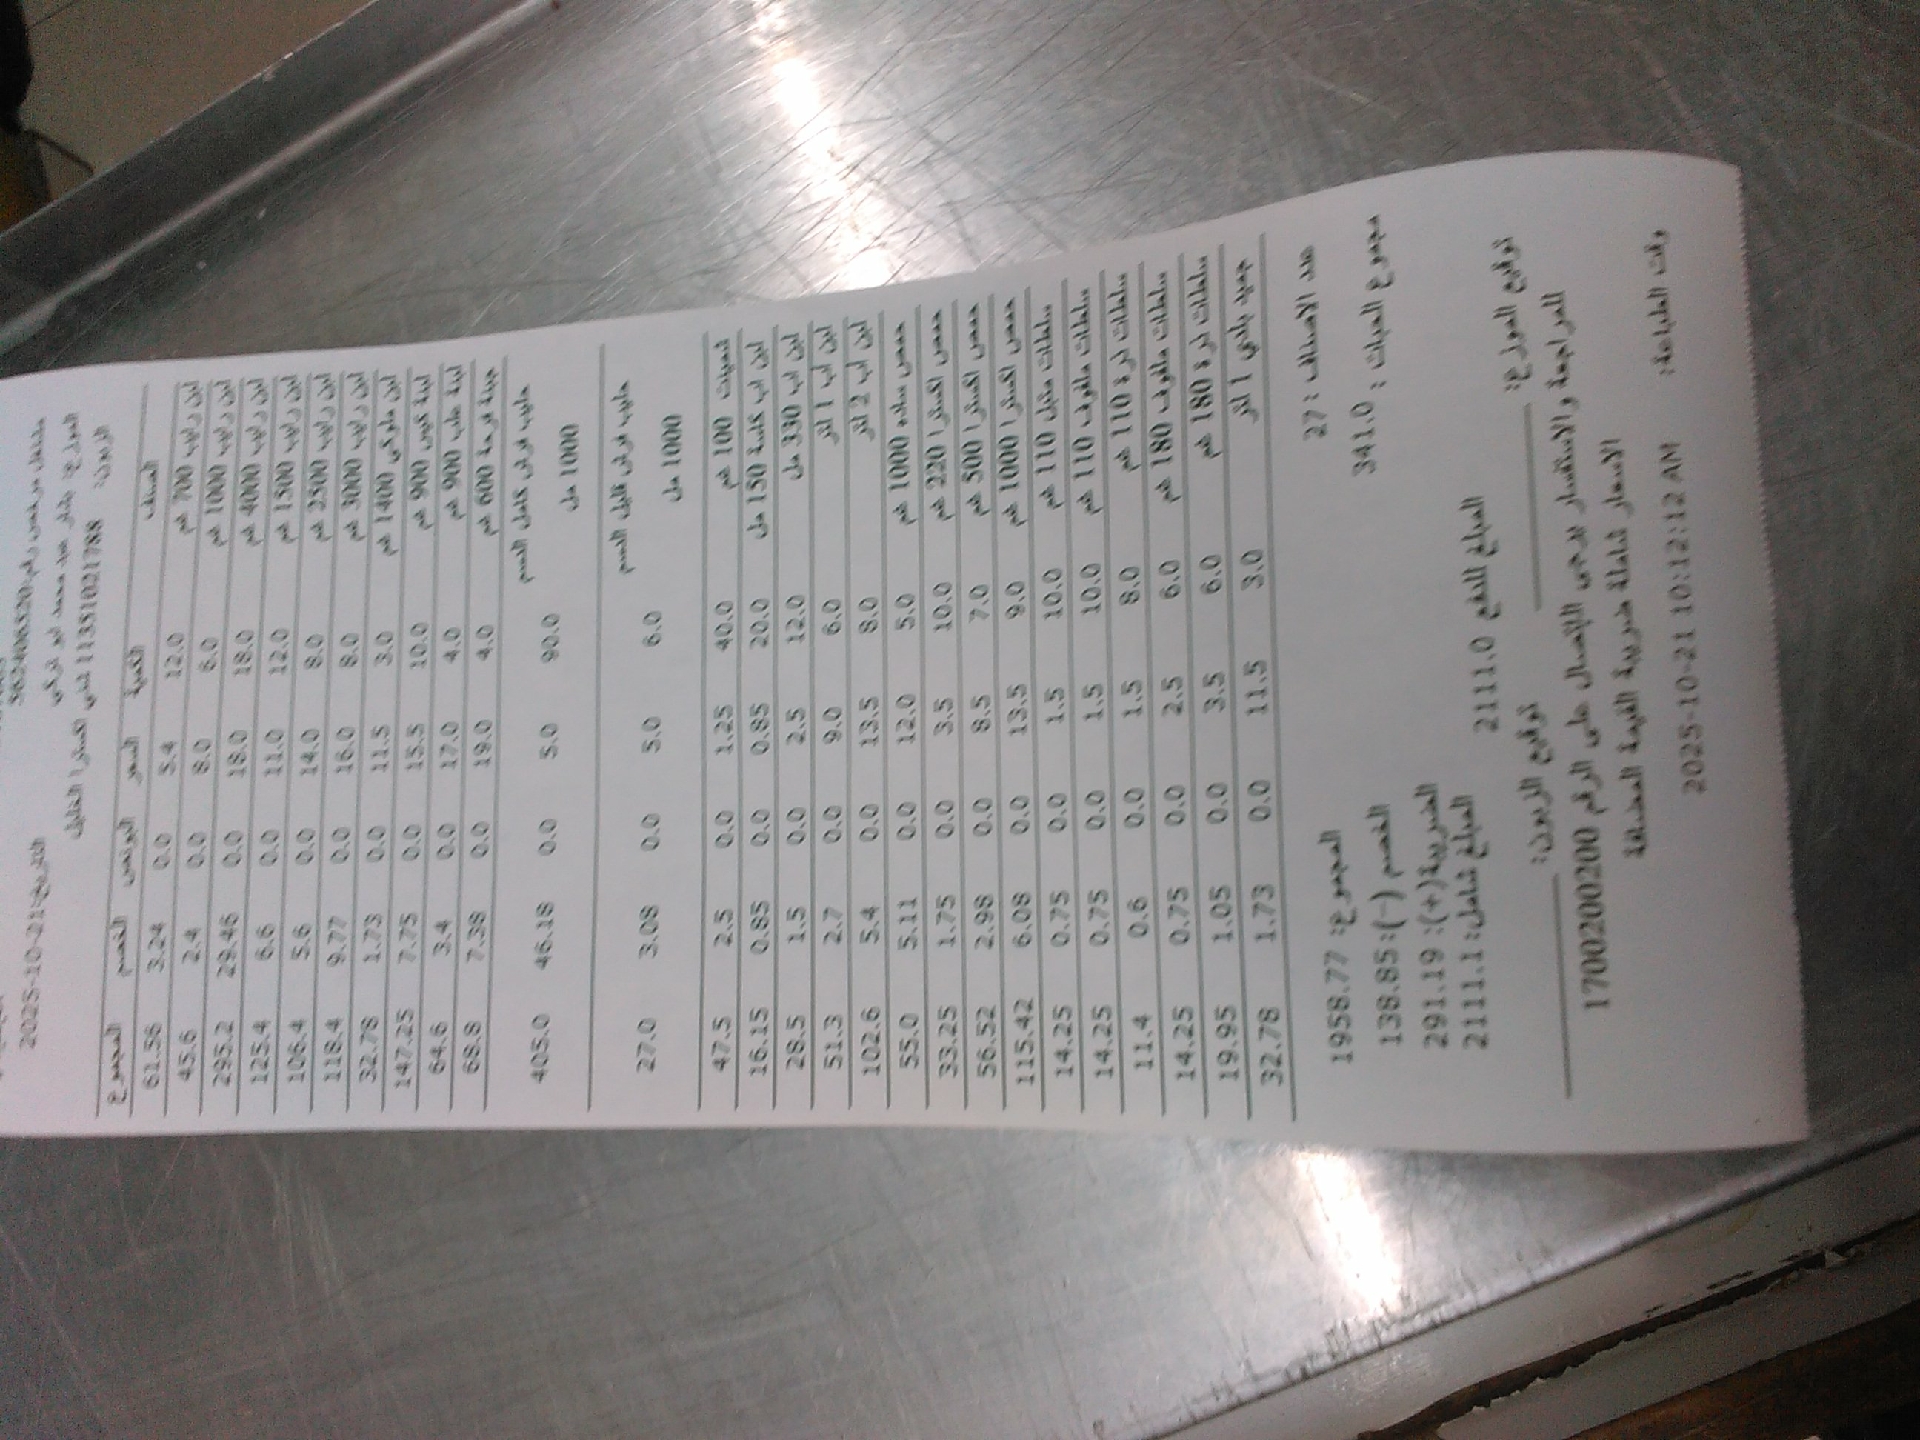 مشتغل مرخص رقم: 562406320
التاريخ: 2025-10-21
الزبون: 1133102178
الصنف الكمية السعر البونص الخصم المجموع
لبن رايب 700 غم 12.0 5.4 0.0 3.24 61.56
لبن رايب 1000 غم 6.0 8.0 0.0 2.4 45.6
لبن رايب 4000 غم 18.0 18.0 0.0 29.46 295.2
لبن رايب 1500 غم 12.0 11.0 0.0 6.6 125.4
لبن رايب 2500 غم 8.0 14.0 0.0 5.6 106.4
لبن رايب 3000 غم 8.0 16.0 0.0 9.77 118.4
لبن ملوكي 1400 غم 3.0 11.5 0.0 1.73 32.78
لبنة كيس 900 غم 10.0 15.5 0.0 7.75 147.25
لبنة علب 900 غم 4.0 17.0 0.0 3.4 64.6
جبنة فرحة 600 غم 4.0 19.0 0.0 7.38 68.8
حليب فرش كامل الدسم 1000 مل 90.0 5.0 0.0 46.18 405.0
حليب فرش قليل الدسم 1000 مل 6.0 5.0 0.0 3.08 27.0
شمينت 100 غم 40.0 1.25 0.0 2.5 47.5
لبن اب كاسة 150 مل 20.0 0.85 0.0 0.85 16.15
لبن اب 330 مل 12.0 2.5 0.0 1.5 28.5
لبن اب 1 لتر 6.0 9.0 0.0 2.7 51.3
لبن اب 2 لتر 8.0 13.5 0.0 5.4 102.6
حمص ساده 1000 غم 5.0 12.0 0.0 5.11 55.0
حمص اكسترا 220 غم 10.0 3.5 0.0 1.75 33.25
حمص اكسترا 500 غم 7.0 8.5 0.0 2.98 56.52
حمص اكسترا 1000 غم 9.0 13.5 0.0 6.08 115.42
سلطات متبل 110 غم 10.0 1.5 0.0 0.75 14.25
سلطات ملفوف 110 غم 10.0 1.5 0.0 0.75 14.25
سلطات ذرة 110 غم 8.0 1.5 0.0 0.6 11.4
سلطات ملفوف 180 غم 6.0 2.5 0.0 0.75 14.25
سلطات ذرة 180 غم 6.0 3.5 0.0 1.05 19.95
جميد بلدي 1 لتر 3.0 11.5 0.0 1.73 32.78
عدد الاصناف : 27 المجموع: 1958.77
مجموع العبوات : 341.0 الخصم (-): 138.85
الضريبة(+): 291.19
المبلغ للدفع 2111.0 المبلغ شامل: 2111.1
توقيع الموزع: توقيع الزبون:
للمراجعة والاستفسار يرجى الإتصال على الرقم 1700200200
الاسعار شاملة ضريبة القيمة المضافة
وقت الطباعة: 2025-10-21 10:12:12 AM